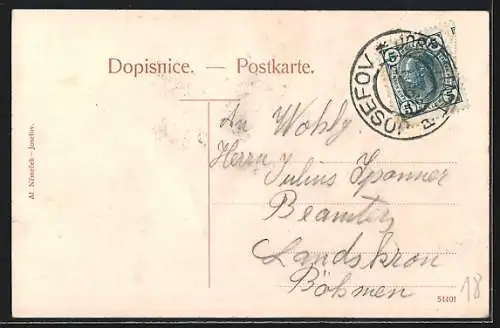 Dopisnice. — Postkarte.
JOSEFOV
5 5
5 5
Al. Němeček - Josefov.
An Wohlg.
Herrn
Julius Sponner
Beamter
Landskron
Böhmen
51401
18